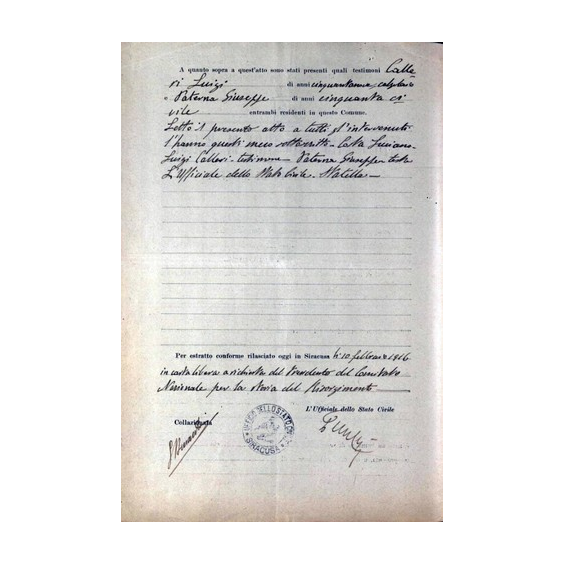 A quanto sopra a quest'atto sono stati presenti quali testimoni Calle
ri Luigi di anni cinquantanove, calzolaio
e Paterna Giuseppe di anni cinquanta ci
vile entrambi residenti in questo Comune.
Letto il presente atto a tutti gl'intervenuti
l'hanno questi meco sottoscritto - Luciano
Luigi Calleri - testimone - Paterna Giuseppe teste
L'Ufficiale dello Stato Civile - Statella -
Per estratto conforme rilasciato oggi in Siracusa li 10 febbraio 1916
in carta libera a richiesta del Presidente del Comitato
Nazionale per la storia del Risorgimento
L'Ufficiale dello Stato Civile
Collazionata
UFFICIO DELLO STATO CIVILE
SIRACUSA